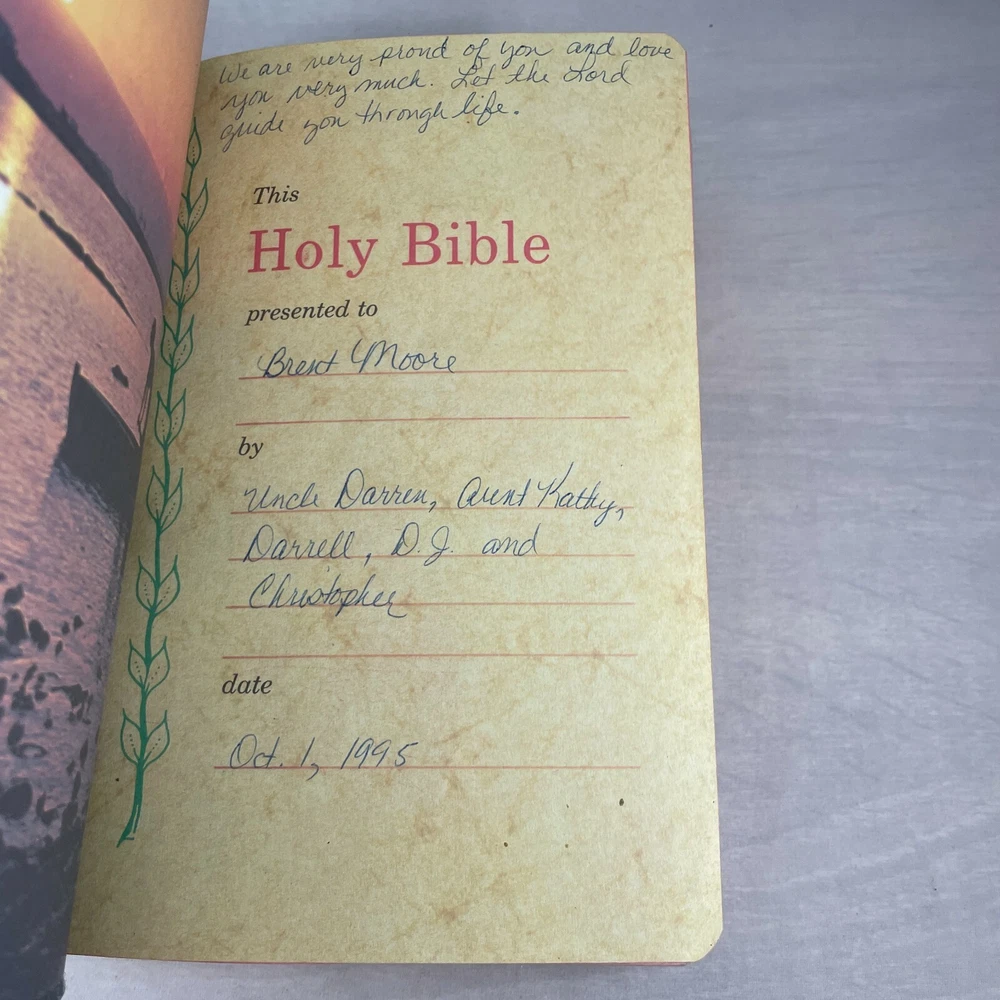 We are very proud of you and love
you very much. Let the Lord
guide you through life.
This
Holy Bible
presented to
Brent Moore
by
Uncle Darren, Aunt Kathy,
Darrell, D.J. and
Christopher
date
Oct. 1, 1995